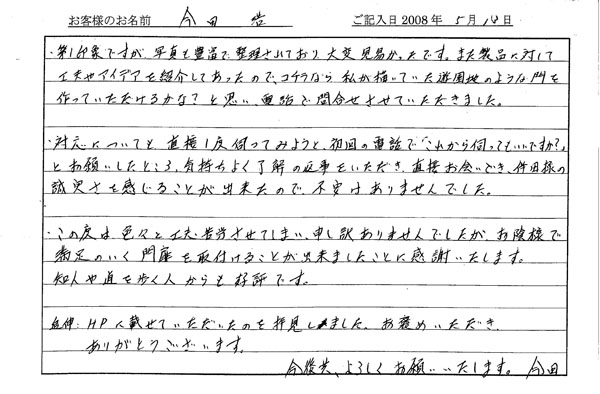 お客様のお名前 今田 浩 ご記入日 2008年 5月 14日
・第1印象ですが、写真も豊富で整理されており大変見易かったです。また製品に対して
工夫やアイデアを紹介してあったので、コチラなら私が描いていた遊園地のような門を
作っていただけるかな？と思い、電話で問合せさせていただきました。
・対応についても、直接1度伺ってみようと、初回の電話で「これから伺ってもいいですか?」
とお願いしたところ、気持ちよく了解の返事をいただき、直接お会いでき、件田様の
誠実さを感じることが出来たので、不安はありませんでした。
・この度は色々と工夫・苦労させてしまい、申し訳ありませんでしたが、お陰様で
満足のいく門扉を取付けることが出来ましたことに感謝いたします。
知人や道を歩く人からも好評です。
追伸: HPに載せていただいたのを拝見しました。お褒めいただき
ありがとうございます。
今後共、よろしくお願いいたします。 今田